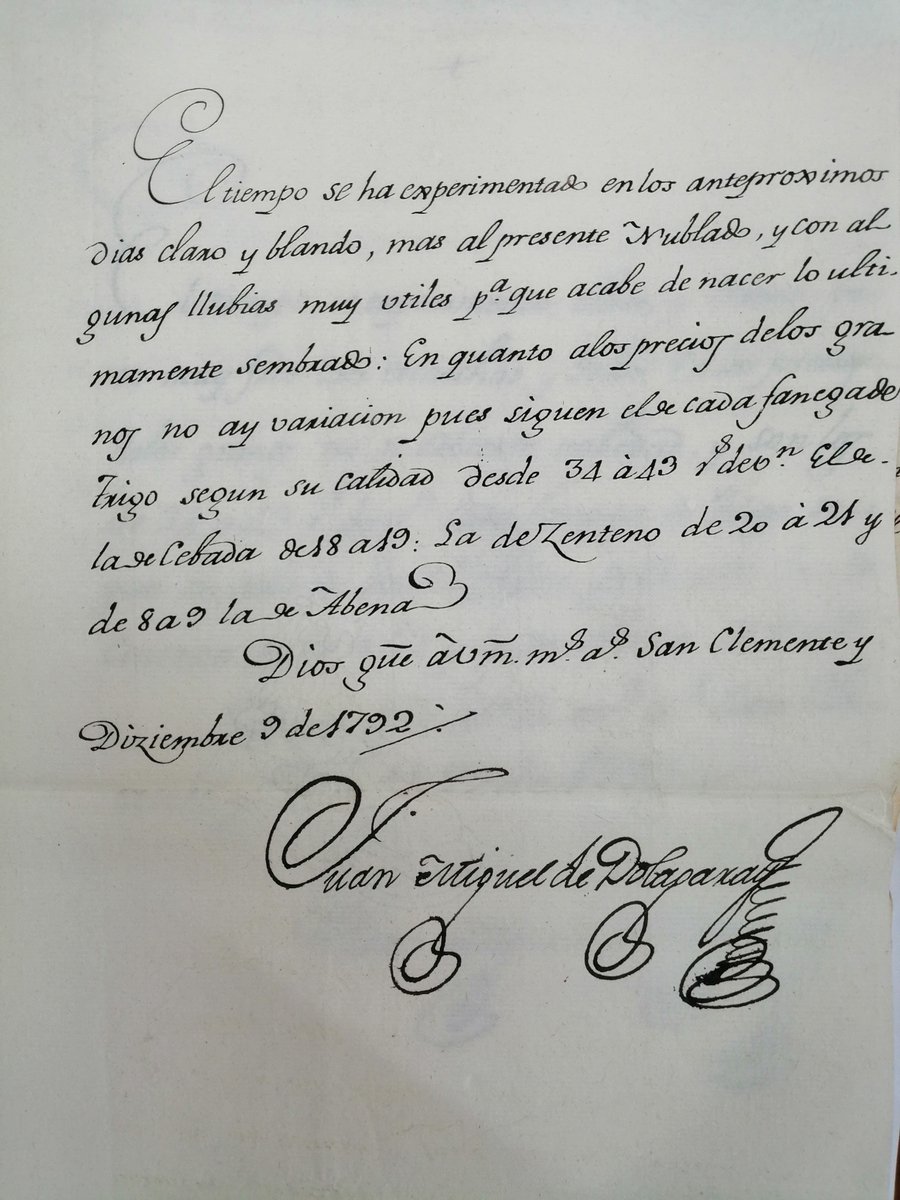 El tiempo se ha experimentado en los anteproximos
dias claro y blando, mas al presente Nublado, y con al-
gunas llubias muy utiles pª. que acabe de nacer lo ulti-
mamente sembrado: En quanto alos precios delos gra-
nos no ay variacion pues siguen el de cada fanega de
trigo segun su calidad desde 34 à 43 rˢ devⁿ. El de
la de Cebada de 18 a 19: La de Zenteno de 20 à 21 y
de 8 a 9 la de Abena
Dios gue à Vm. mˢ. aˢ. San Clemente y
Diziembre 9 de 1792
Juan Miguel de